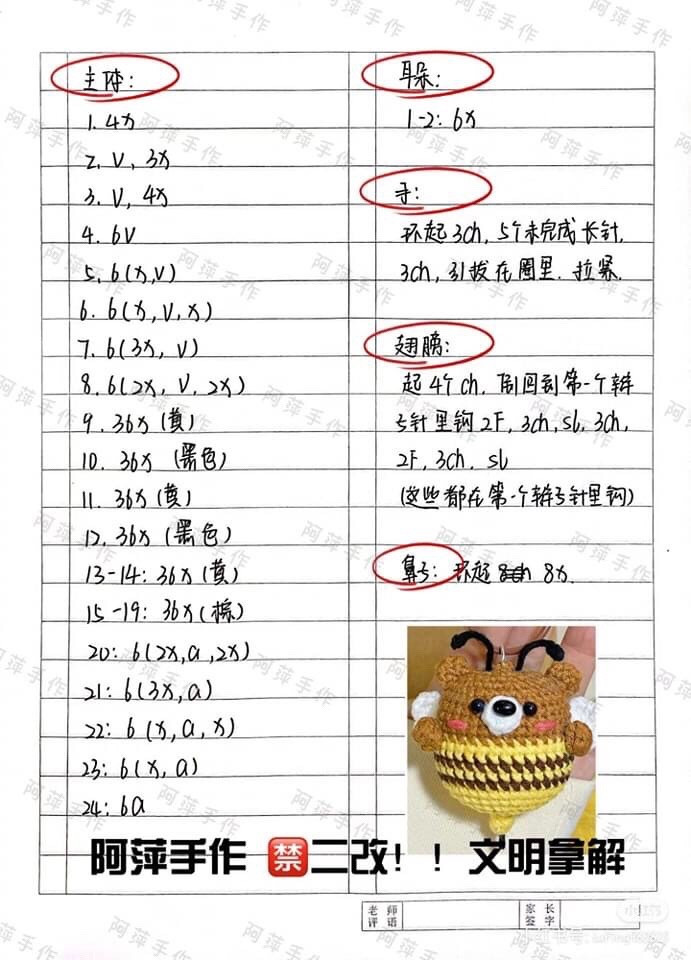 主体:
1. 4x
2. V, 3x
3. V, 4x
4. 6V
5. 6(x,V)
6. 6(x,V,x)
7. 6(3x,V)
8. 6(2x,V,2x)
9. 36x(黄)
10. 36x(黑色)
11. 36x(黄)
12. 36x(黑色)
13-14: 36x(黄)
15-19: 36x(棕)
20: 6(2x,a,2x)
21: 6(3x,a)
22: 6(x,a,x)
23: 6(x,a)
24: 6a
耳朵:
1-2: 6x
手:
环起3ch, 5个未完成长针,
3ch, 引拔在圈里. 拉紧.
翅膀:
起4个ch, 倒回到第一个辫
子针里钩2F, 3ch, sl, 3ch,
2F, 3ch, sl
(这些都在第一个辫子针里钩)
鼻子: 环起 8ch 8x.
阿萍手作 禁二改!!文明拿解
老师评语
家长签字
阿萍手作
小红书
小红书号: